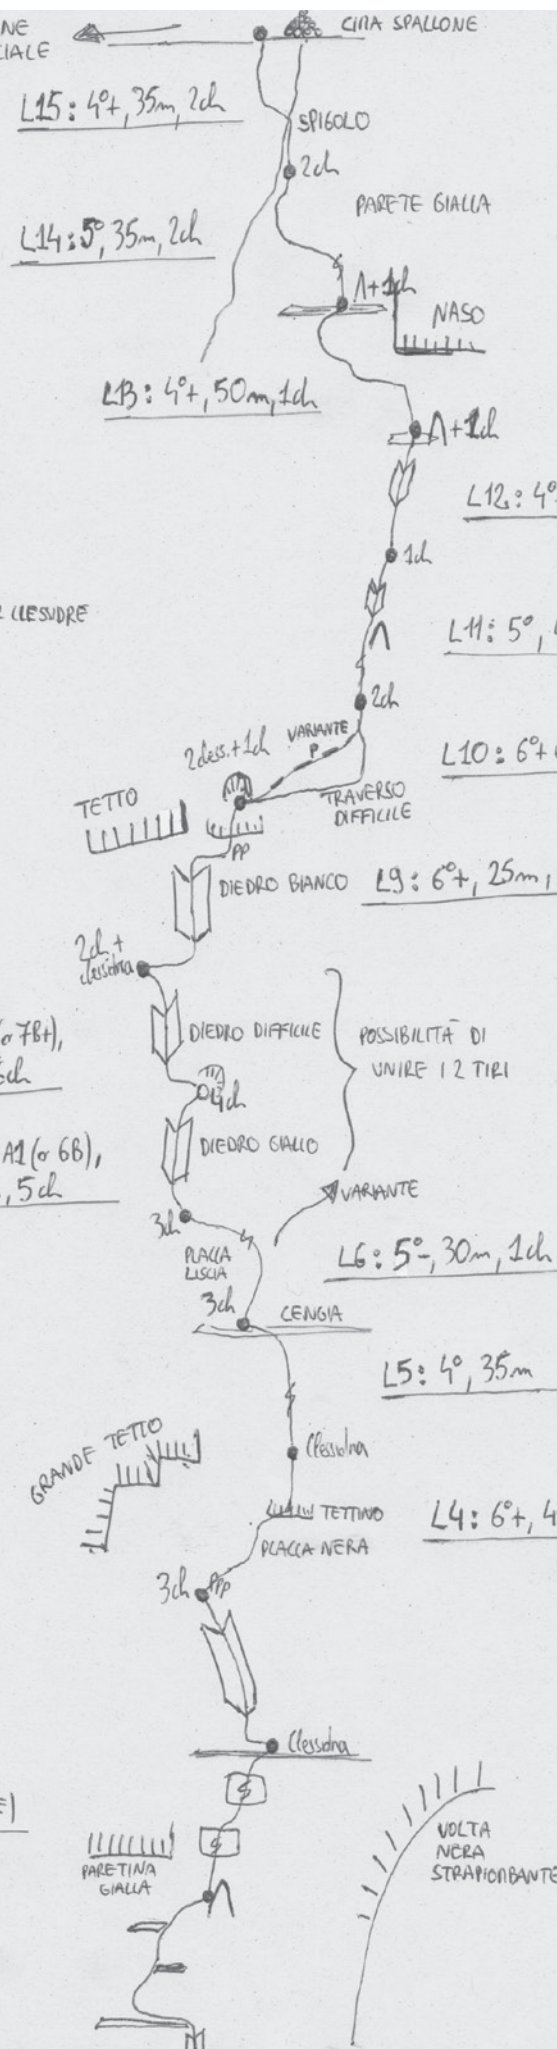 CIMA SPALLONE
L15: 4°+, 35m, 2ch
SPIGOLO
2ch
PARETE GIALLA
L14: 5°, 35m, 2ch
Λ+1ch
NASO
L13: 4°+, 50m, 1ch
Λ+1ch
L12: 4°
1ch
CLESSIDRE
L11: 5°,
2ch
VARIANTE
P
2cless.+1ch
L10: 6°+
TETTO
TRAVERSO
DIFFICILE
PP
DIEDRO BIANCO
L9: 6°+, 25m,
2ch +
clessidra
DIEDRO DIFFICILE
POSSIBILITÀ DI
UNIRE I 2 TIRI
7B+),
4ch
DIEDRO GIALLO
A1 (o 6B),
, 5ch
VARIANTE
3ch
PLACCA
LISCIA
L6: 5°-, 30m, 1ch
3ch
CENGIA
L5: 4°, 35m
GRANDE TETTO
Clessidra
TETTINO
L4: 6°+, 4
PLACCA NERA
3ch
PPP
Clessidra
PARETINA
GIALLA
VOLTA
NERA
STRAPIOMBANTE